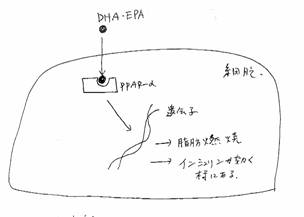 DHA・EPA
細胞
PPAR-α
遺伝子
→ 脂肪燃焼
→ インシュリンが効く
様になる